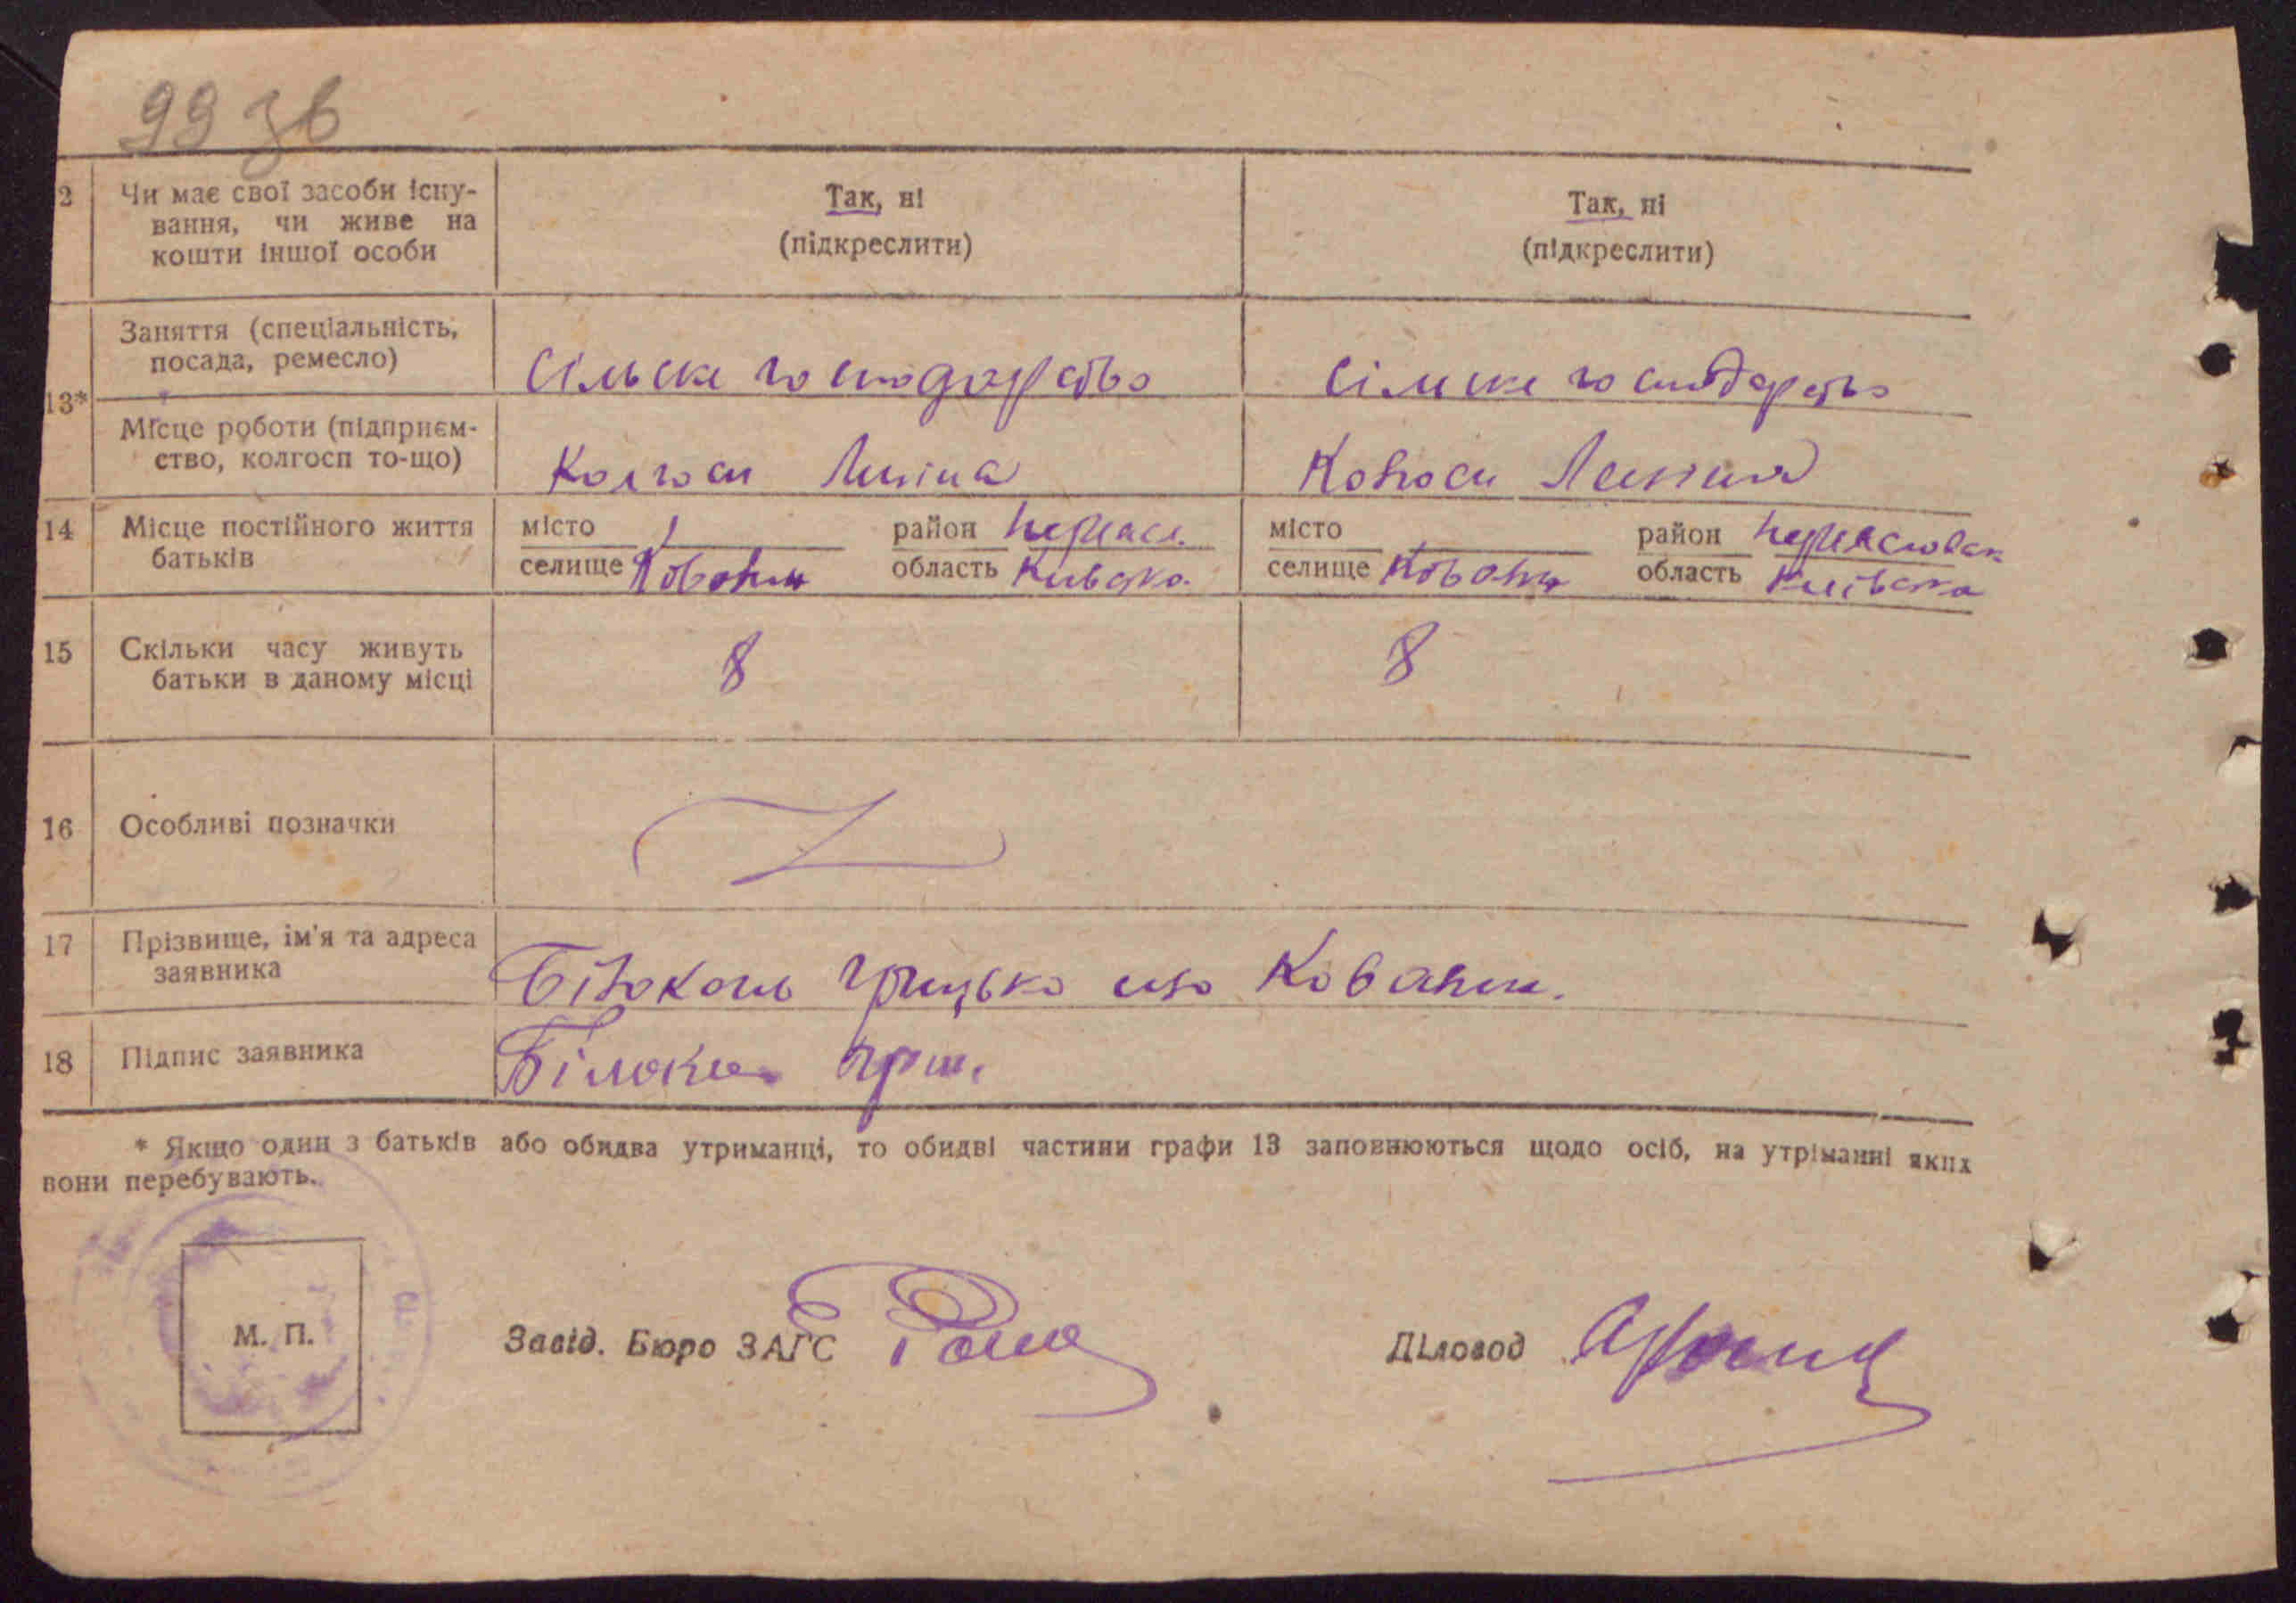 99 зв
2 Чи має свої засоби існу-
вання, чи живе на
кошти іншої особи
Так, ні
(підкреслити)
Так, ні
(підкреслити)
13*
Заняття (спеціальність,
посада, ремесло)
Сільське господарство
Сільске господарство
Місце роботи (підприєм-
ство, колгосп то-що)
Колгосп Леніна
Колгосп Леніна
14 Місце постійного життя
батьків
місто
селище Ковалин
район Переясл.
область Київська
місто
селище Ковалин
район Переясловск
область Київська
15 Скільки часу живуть
батьки в даному місці
8
8
16 Особливі позначки
17 Прізвище, ім'я та адреса
заявника
Білоконь Грицько село Ковалин.
18 Підпис заявника
Білоконь Гри.
* Якщо один з батьків або обидва утриманці, то обидві частини графи 13 заповнюються щодо осіб, на утріманні яких
вони перебувають.
М. П.
Завід. Бюро ЗАГС
Діловод